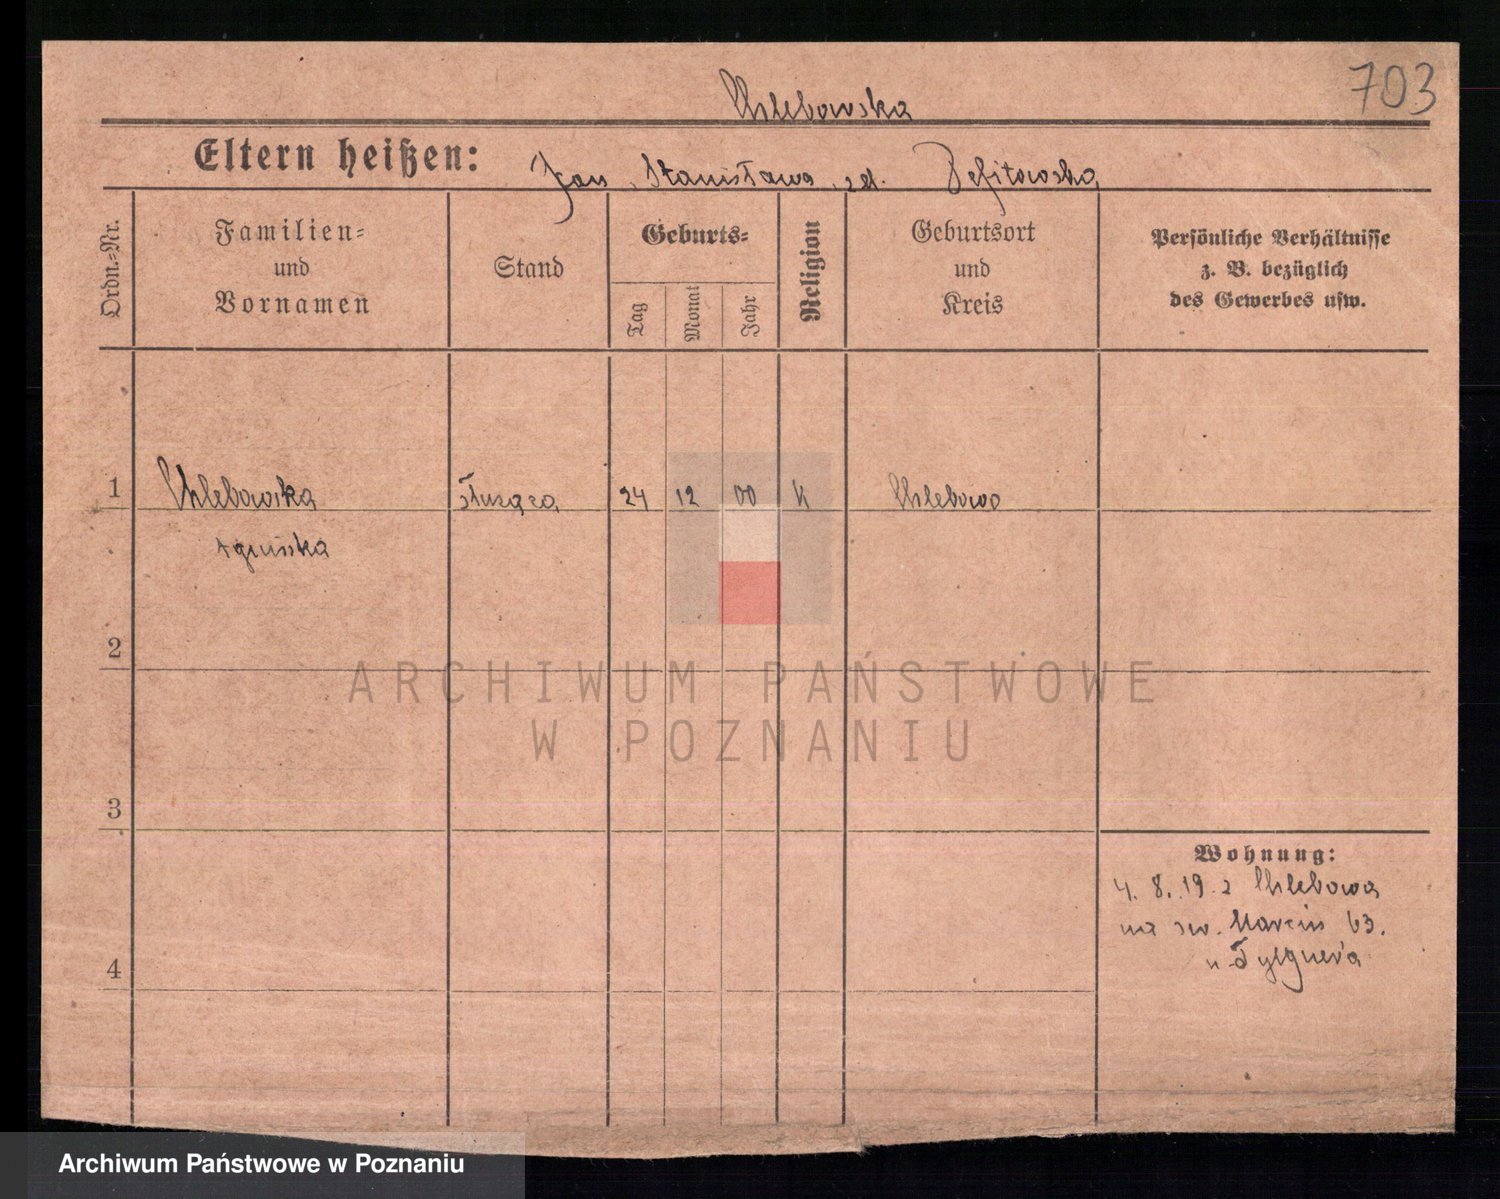 703
Chlebowska
Eltern heißen: Jan, Stanisława, zd.
Ordn.=Nr.
Familien= und Vornamen
Stand
Geburts=
Tag
Monat
Jahr
Religion
Geburtsort und Kreis
Persönliche Verhältnisse
z. B. bezüglich
des Gewerbes usw.
1 Chlebowska służąca 24 12 00 K Chlebowo
Agniska
2
3
4
Wohnung:
4. 8. 19 z Chlebowa
na św. Marcin 63.
u Tylgner'a
ARCHIWUM PAŃSTWOWE
W POZNANIU
Archiwum Państwowe w Poznaniu